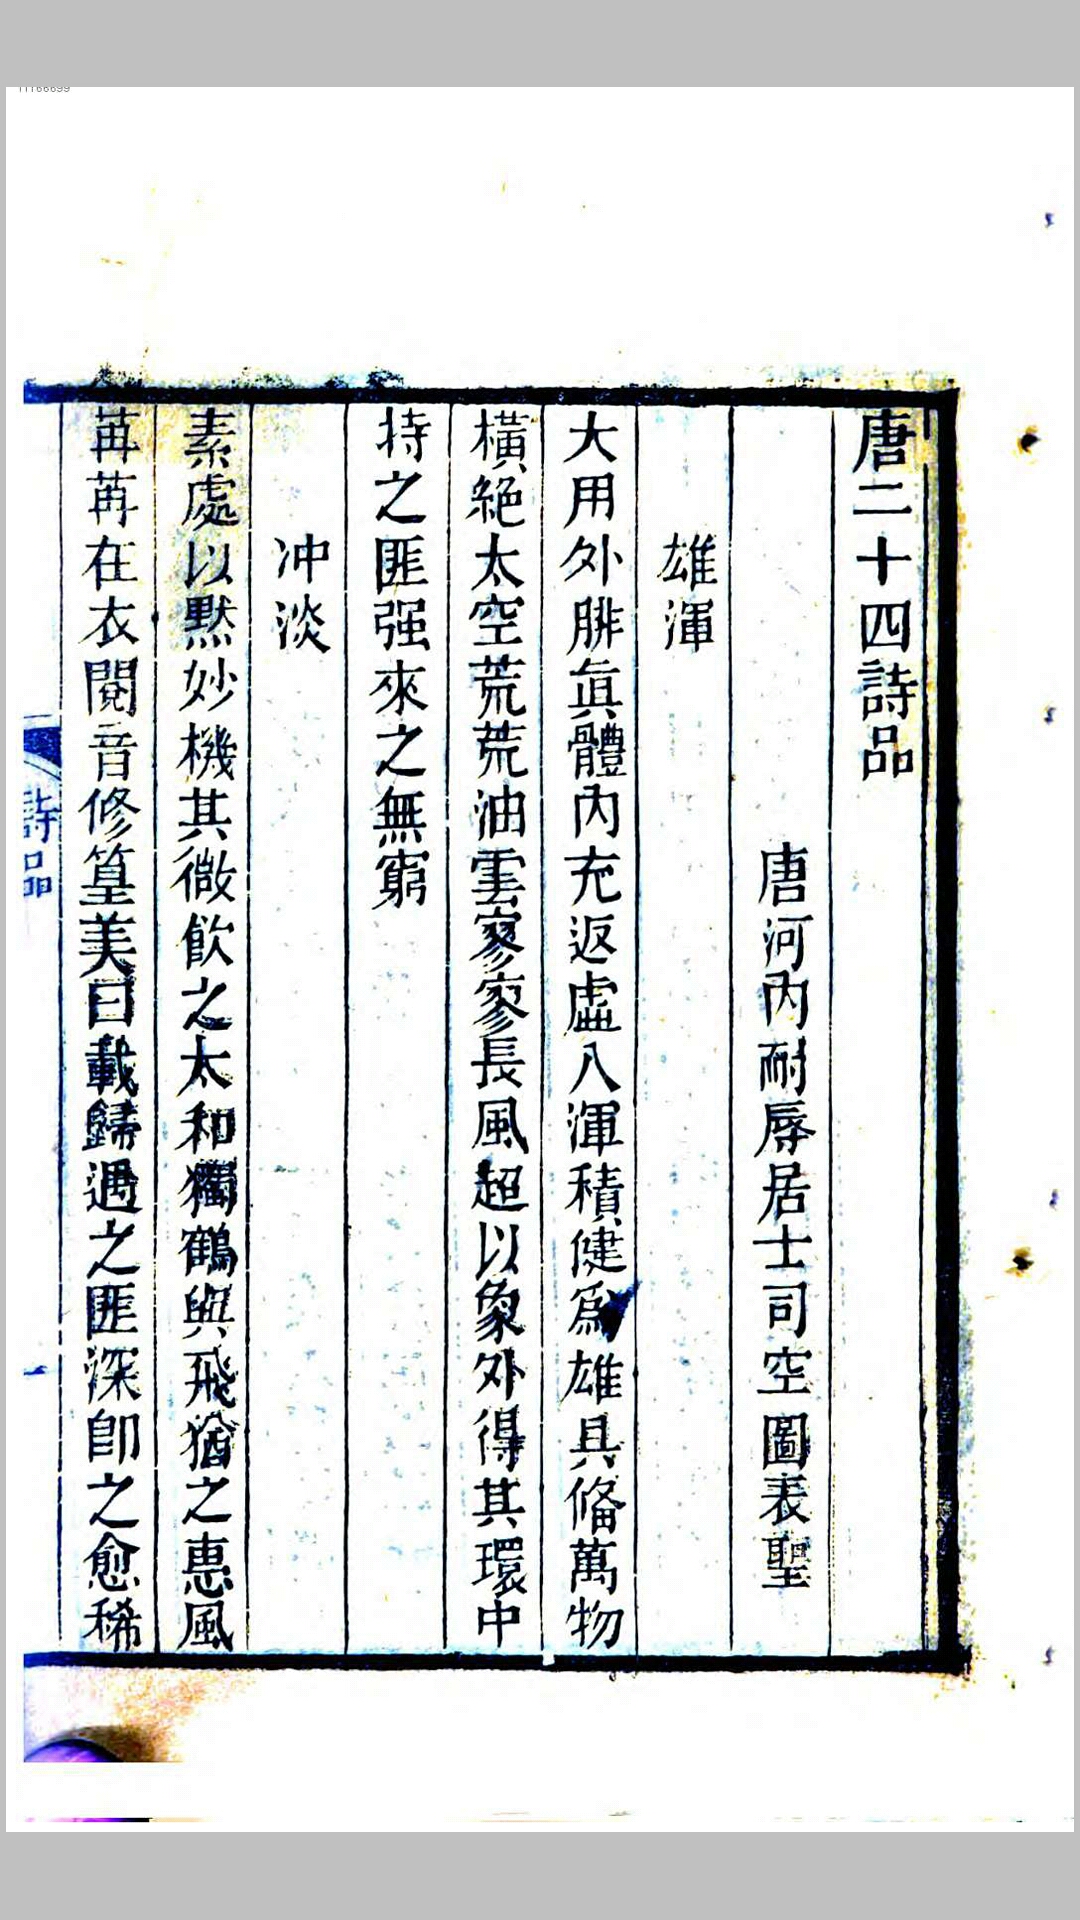 唐二十四詩品
唐河內耐辱居士司空圖表聖
雄渾
大用外腓眞體內充返虛入渾積健爲雄具俻萬物
橫絕太空荒荒油雲寥寥長風超以象外得其環中
持之匪强來之無窮
冲淡
素處以黙妙機其微飮之太和獨鶴與飛猶之惠風
苒苒在衣閱音修篁美曰載歸遇之匪深卽之愈稀
詩品